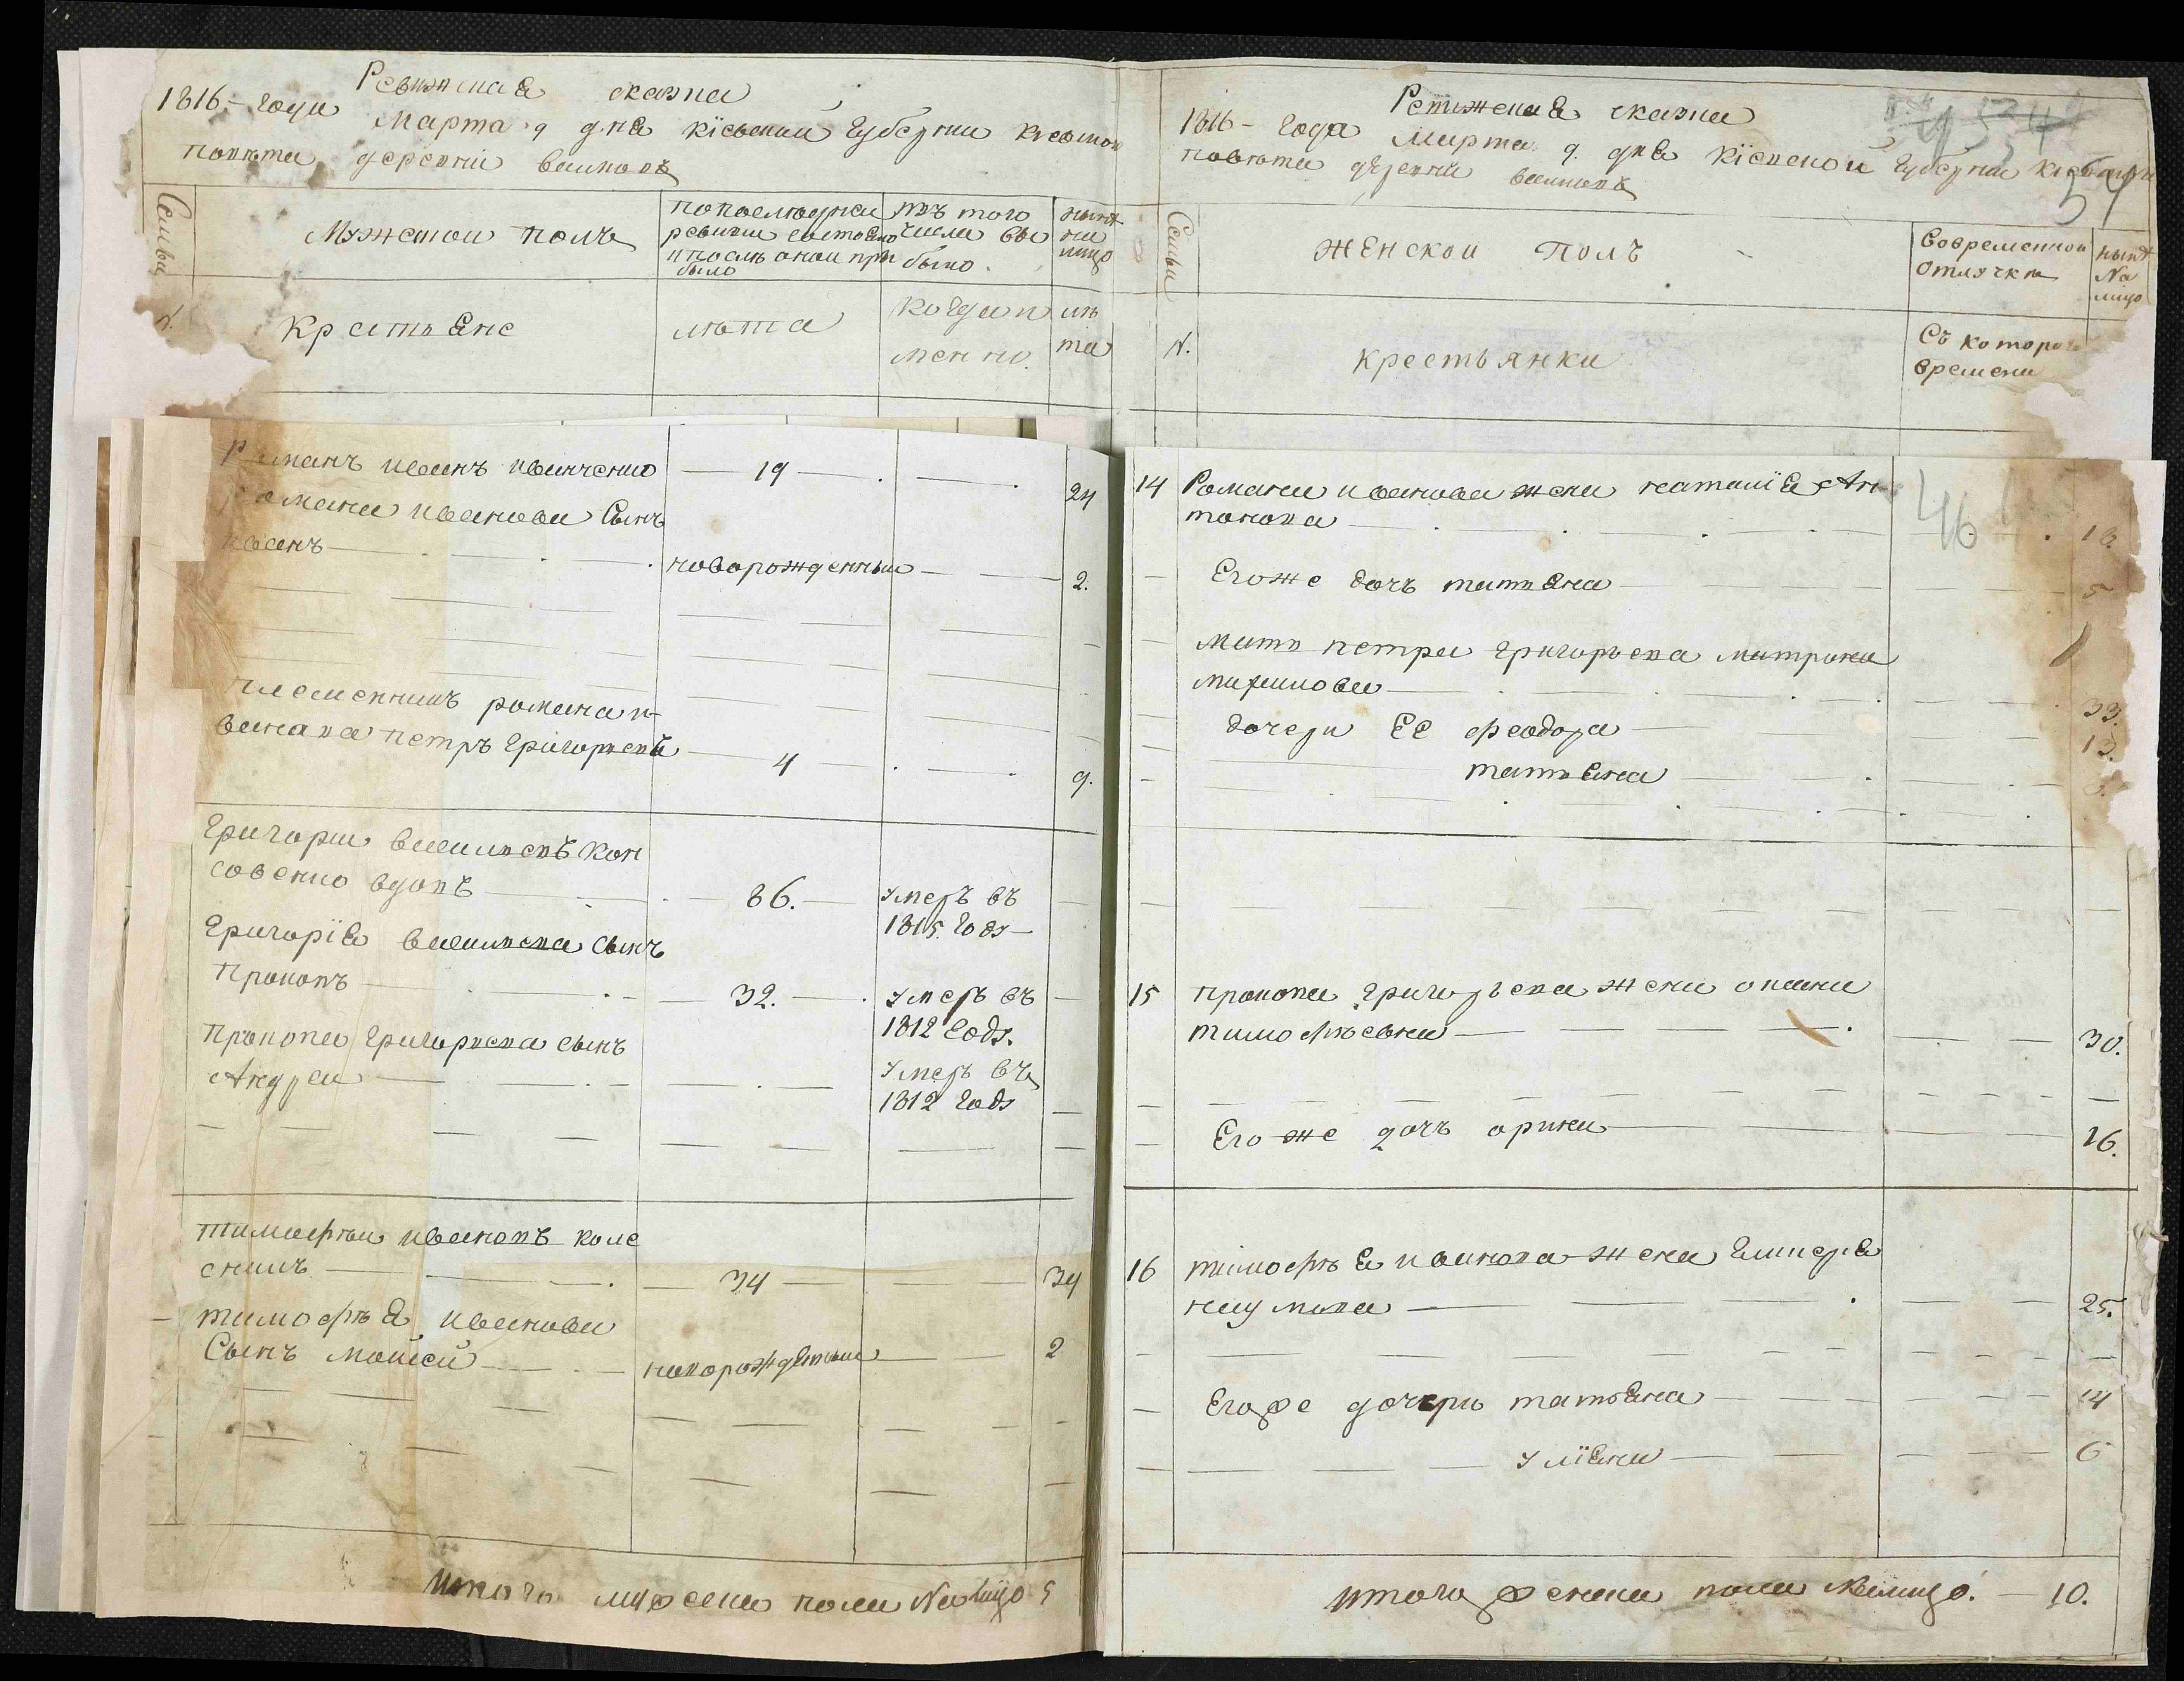 Ревизская сказка
1816 - года Марта 9 дня Кїевской Губернии Кіевскои
повѣта деревни
Семьи
Мужескои полъ
попоследнеи
ревизии состояло
и послѣ онои при
было
изъ того
числа вы
было.
нынѣ
на
лицо
N.
Крестьяне
лѣта
когда и
менно.
лѣ
та
Романъ иванъ иванченко — 19 — 24
Романа иванова Сынъ
иванъ — новорожденныи — 2.
племенникъ романа и-
ванова петръ григорьевъ — 4 — 9.
Григории василиевъ кон
совенко вдовъ — 86. — умеръ въ
1815 годꙋ —
Григорїя василиева сынъ
Прокопъ — 32. — умеръ въ
1812 годꙋ.
Прокопа григориева сынъ
Андреи — умеръ въ
1812 годꙋ
тимофѣи ивановъ коле
сникъ — 34 — 34
тимофѣя иванова
Сынъ моисей — новорожденныи — 2
Итого мужеска пола на лицо 5
Ревизская сказка
1816 - года Марта 9. дня Кїевской Губернии
повѣта деревни
54
Семьи
женскои полъ
Вовременнои
отлучки
нынѣ
На
лицо
N.
крестьянки
Съ которого
времени
46
14 Романа иванова жена наталїя Ан-
тонова — 18.
Егоже дочь татьяна — 5
Мать петра григорьева матрона
— 33.
дочери ее феодора — 13.
татьяна
15 прокопа григорьева жена
тимофѣевна — 30.
Его же дочь орина — 16.
16 тимофѣя иванова жена Гликерїя
наумова — 25.
Егоже дочери татьяна — 14
улїяна — 6
итого женска пола налицо. — 10.